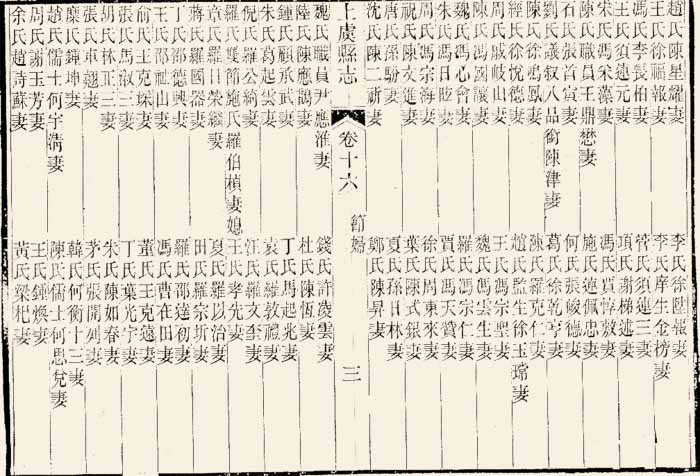 趙氏陳星耀妻 李氏徐陞報妻
王氏徐福報妻 李氏庠生金榜妻
馮氏李長柏妻 管氏須連三妻
王氏須進元妻 項氏謝梯雲妻
宋氏馮宋藻妻 馮氏賈惇敦妻
陳氏職員王鼎懋妻 施氏連佩忠妻
石氏張首寅妻 何氏張峻德妻
劉氏議叙八品銜陳津妻 葛氏徐乾亨妻
陳氏徐鳴鳳妻 陳氏羅克仁妻
經氏徐悅德妻 趙氏監生徐玉瑺妻
周氏戚岐山妻 王氏馮宗聖妻
陳氏馮國驤妻 魏氏馮雲生妻
魏氏馮心會妻 羅氏馮宗仁妻
朱氏馮日旼妻 賈氏馮天賞妻
周氏馮宗海妻 徐氏周東來妻
祝氏陳文進妻 葉氏陳式銀妻
唐氏孫駉妻 夏氏孫日林妻
沈氏陳二新妻 鄭氏陳昇妻
上虞縣志 卷十六 節婦 三
魏氏職員尹應淮妻 錢氏許凌雲妻
陸氏陳應鵲妻 杜氏陳恆妻
鍾氏顧承武妻 丁氏馬起兆妻
朱氏葛起雲妻 袁氏羅敦禮妻
倪氏羅公綺妻 汪氏羅文至妻
羅氏雙節施氏羅伯楨妻媳 王氏李先妻
章氏羅日榮繼妻 夏氏羅以治妻
蔣氏羅國器妻 田氏羅宗圻妻
丁氏邵德興妻 羅氏邵達初妻
王氏邵祉山妻 馮氏曹在田妻
俞氏王克琛妻 董氏王克遠妻
張氏馬淑三妻 丁氏葉光宇妻
胡氏林正三妻 朱氏陳如春妻
張氏車翹妻 茅氏張開列妻
糜氏鍾坤妻 韓氏何衡十三妻
周氏謝玉芳妻 陳氏儒士何思兌妻
趙氏儒士何宇淸妻 王氏鍾煥妻
余氏趙詩蘇妻 黃氏梁杞妻